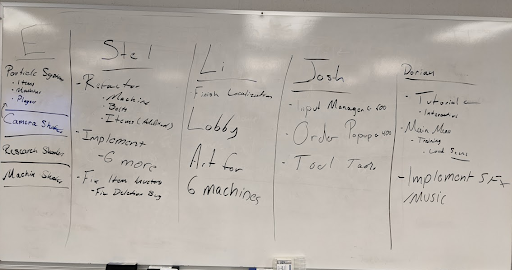 E
Particle System
- Items
- Machines
- Player
Camera Shader
Research Shader
Machin Shader
Stel
- Refactor
- Machine
- Belts
- Items (Additional)
- Implement
- 6 more
- Fix Item
- Fix Deletion Bug
Li
Finish Localization
Lobby
Art for
6 machines
Josh
- Input Manager
- Order Popups
- Tool
Dorian
- Tutorial
- Main Menu
- Training
- Load
- Implement SFX
Music